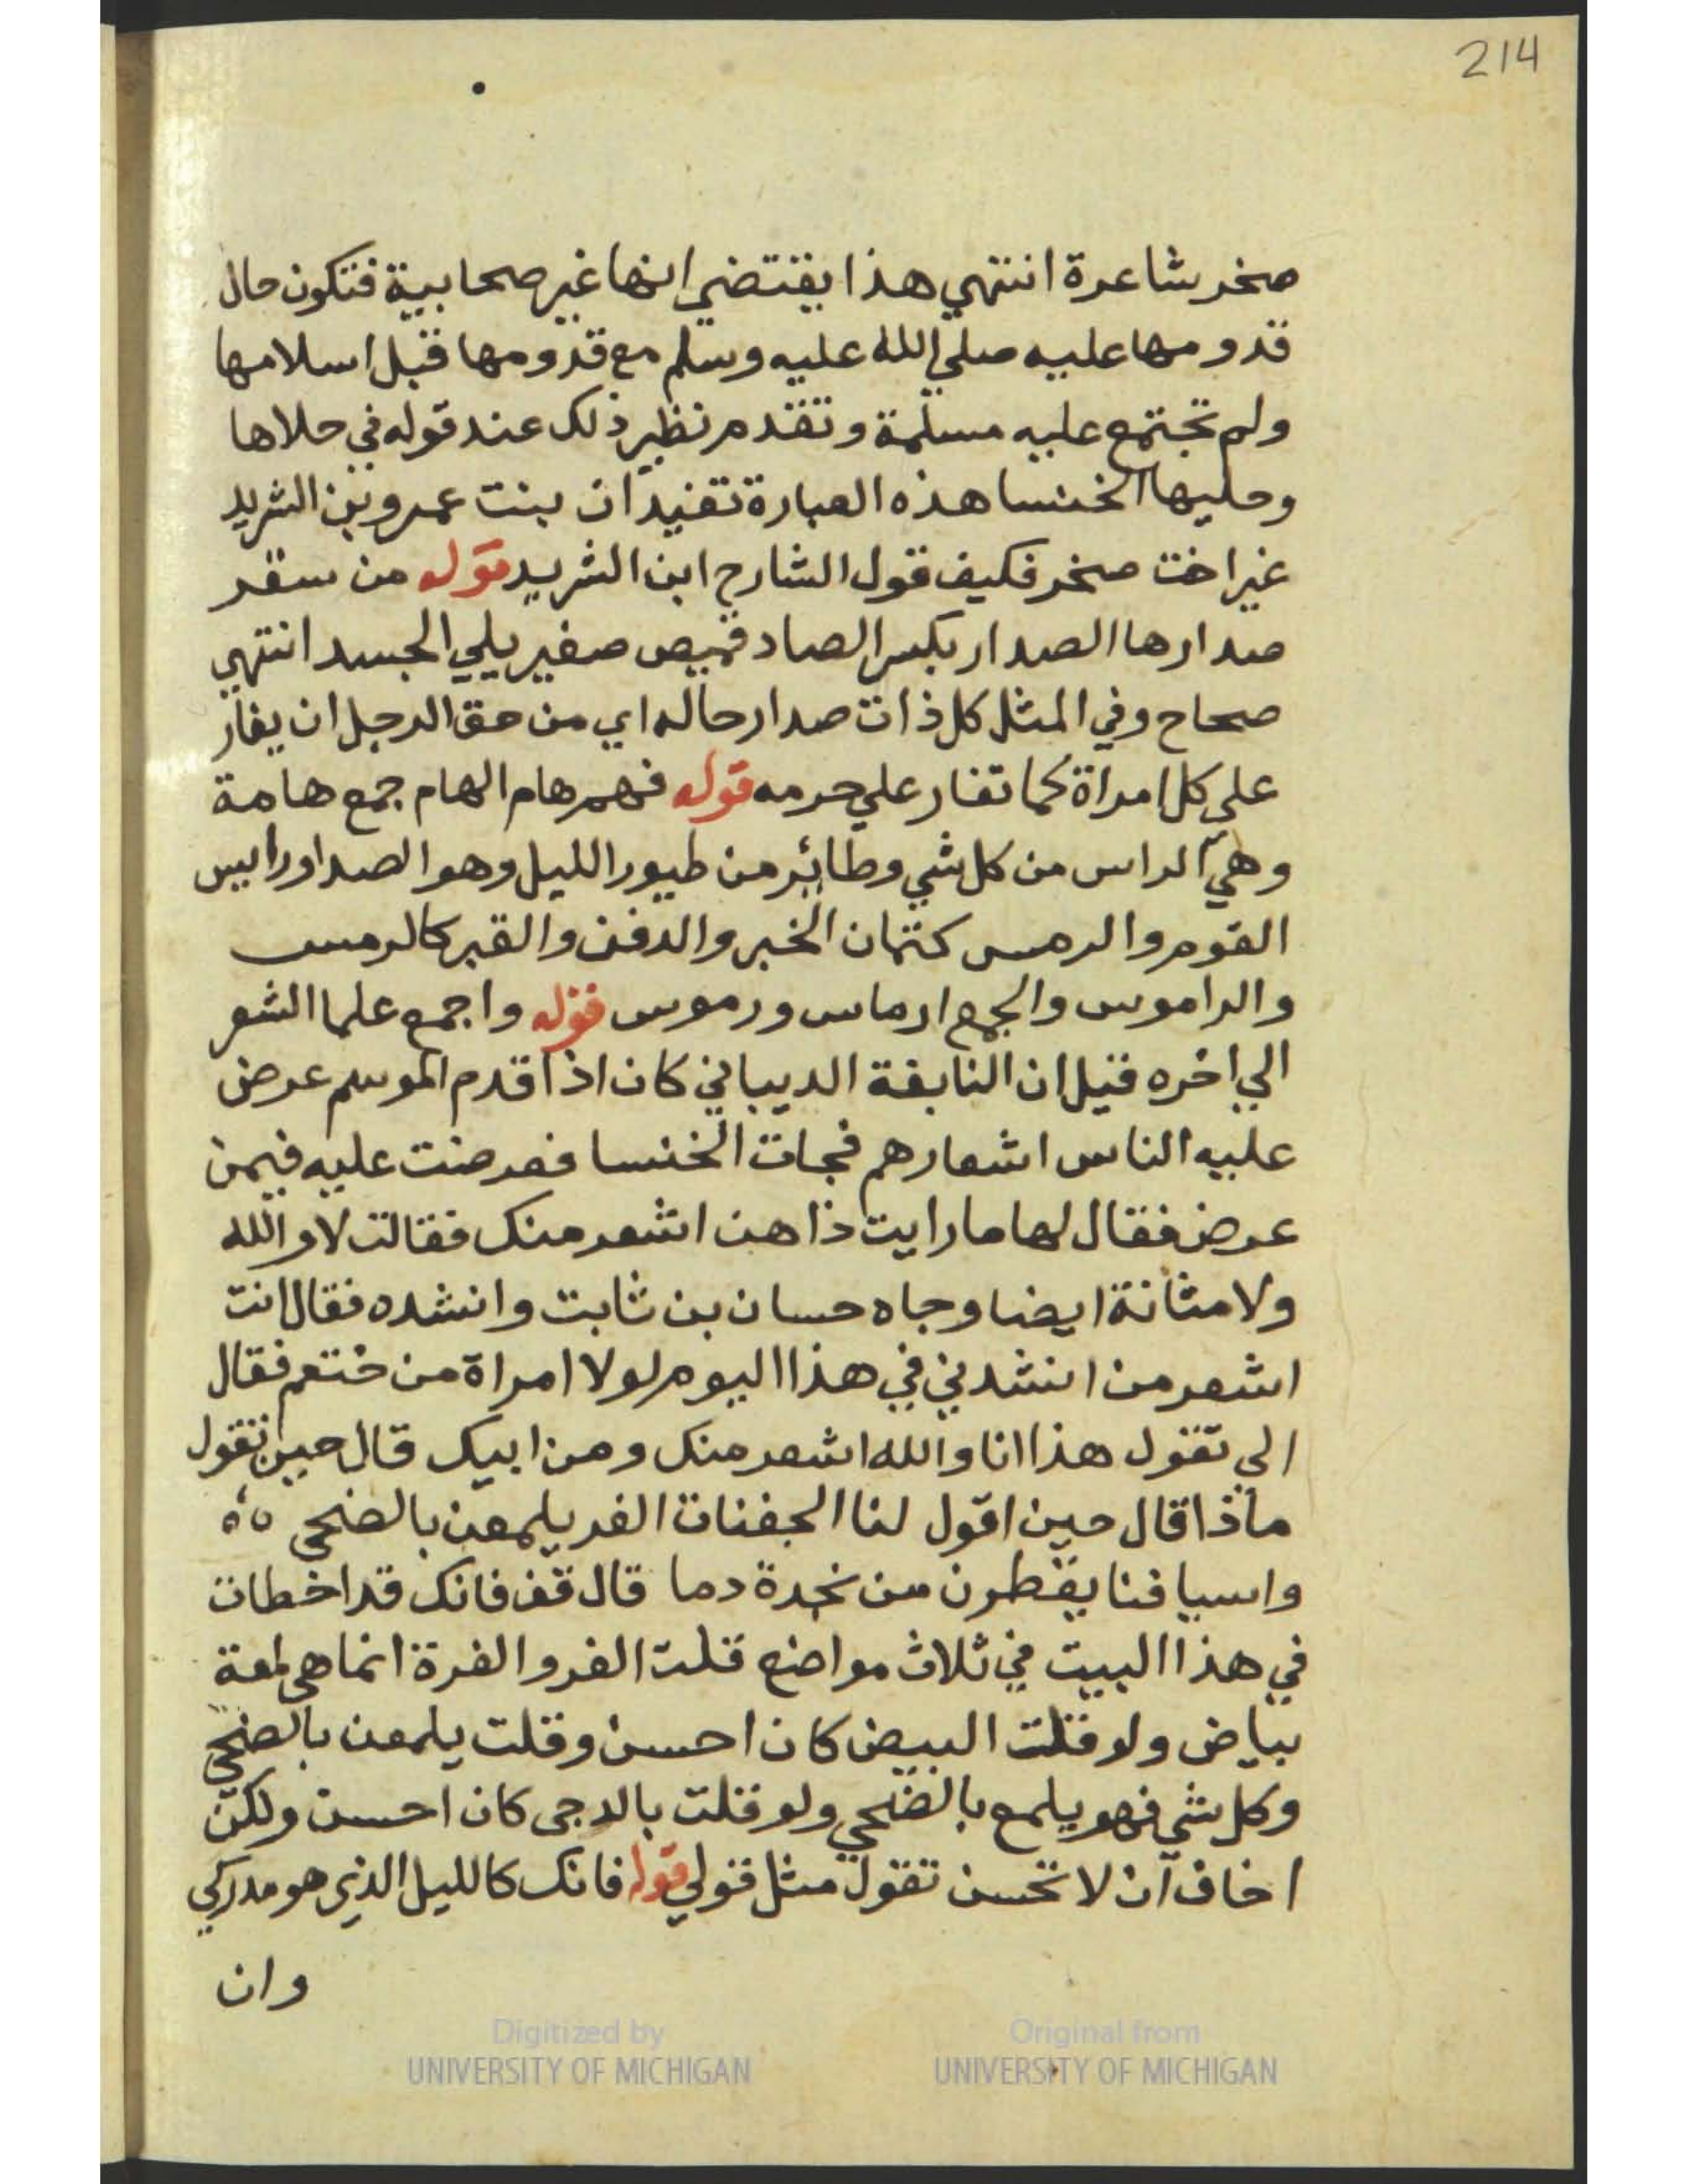 214
صخر شاعرة انتهي هذا يقتضي انها غير صحابية فتكون حال
قدومها عليه صلي الله عليه وسلم مع قدومها قبل اسلامها
ولم تجتمع عليه مسلمة وتقدم نظير ذلك عند قوله في حلاها
وحليها الخنسا هذه العبارة تفيد ان بنت عمرو بن الشريد
غير اخت صخر فكيف قول الشارح ابن الشريد قوله من سقر
صدارها الصدار بكسر الصاد قميص صغير يلي الجسد انتهي
صحاح وفي المثل كل ذات صدار حاله اي من حق الرجل ان يغار
علي كل امراة كما تغار علي حرمه قوله فهم هام الهام جمع هامة
وهي الراس من كل شي وطائر من طيور الليل وهو الصدا ورايس
القوم والرمس كتمان الخبر والدفن والقبر كالرمس
والراموس والجمع ارماس ورموس قوله واجمع علما الشعر
الي اخره قيل ان النابغة الديباني كان اذا قدم الموسم عرض
عليه الناس اشعارهم فجات الخنسا فعرضت عليه فيمن
عرض فقال لها ما رايت ذا هن اشعر منك فقالت لا والله
ولا مثانة ايضا وجاه حسان بن ثابت وانشده فقال انت
اشعر من انشدني في هذا اليوم لولا امراة من ختعم فقال
الي تقول هذا انا والله اشعر منك ومن ابيك قال حين تقول
ماذا قال حين اقول لنا الجفنات الغر يلمعن بالضحي
واسيافنا يقطرن من نجدة دما قال قف فانك قد اخطات
في هذا البيت في ثلاث مواضع قلت الغر والغرة انما هي لمعة
بياض ولو قلت البيض كان احسن وقلت يلمعن بالضحي
وكل شي فهو يلمع بالضحي ولو قلت بالدجي كان احسن ولكن
اخاف ان لا تحسن تقول مثل قولي قوله فانك كالليل الذي هو مدركي
وان
Digitized by
UNIVERSITY OF MICHIGAN
Original from
UNIVERSITY OF MICHIGAN